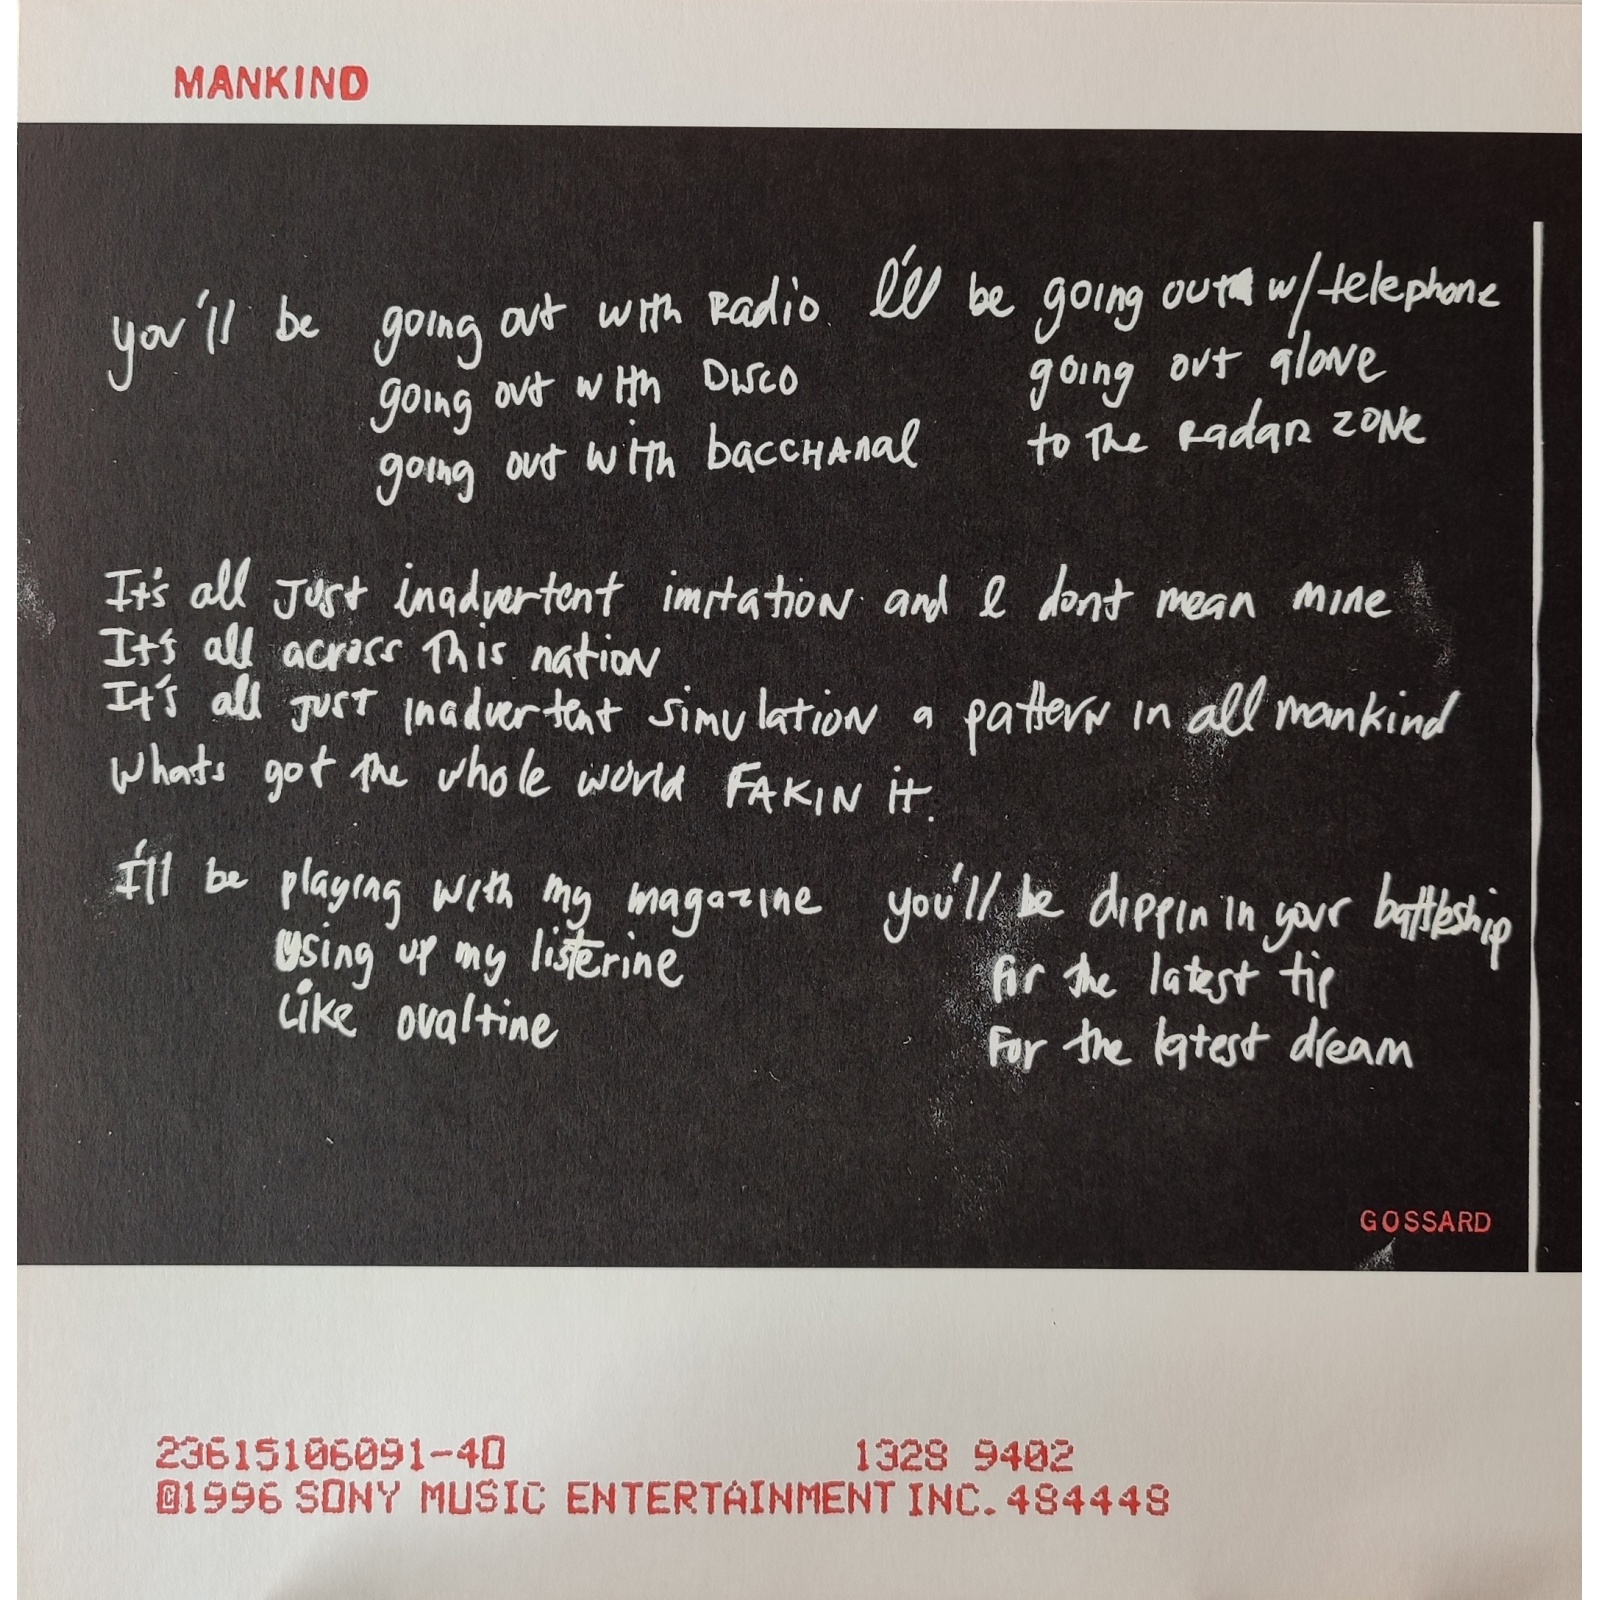 MANKIND
you'll be going out with Radio. I'll be going out w/telephone
going out with Disco going out alone
going out with bacchanal to the radar zone
It's all Just inadvertent imitation and I dont mean mine
It's all across this nation
It's all just inadvertent simulation a pattern in all mankind
Whats got the whole world FAKIN it.
I'll be playing with my magazine you'll be dippin in your battleship
using up my listerine for the latest tip
like ovaltine For the latest dream
GOSSARD
23615106091-4D 1328 9402
©1996 SONY MUSIC ENTERTAINMENT INC. 484448